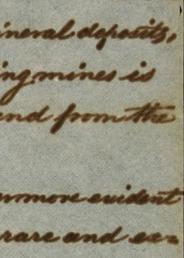 mineral deposits,
ing mines is
and from the
more evident
rare and ex=